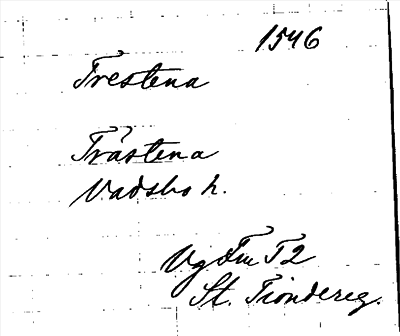 1546
Trestena
?
Trästena
Vadsbo h.
Vg Fm T2
St. Tiondereg.